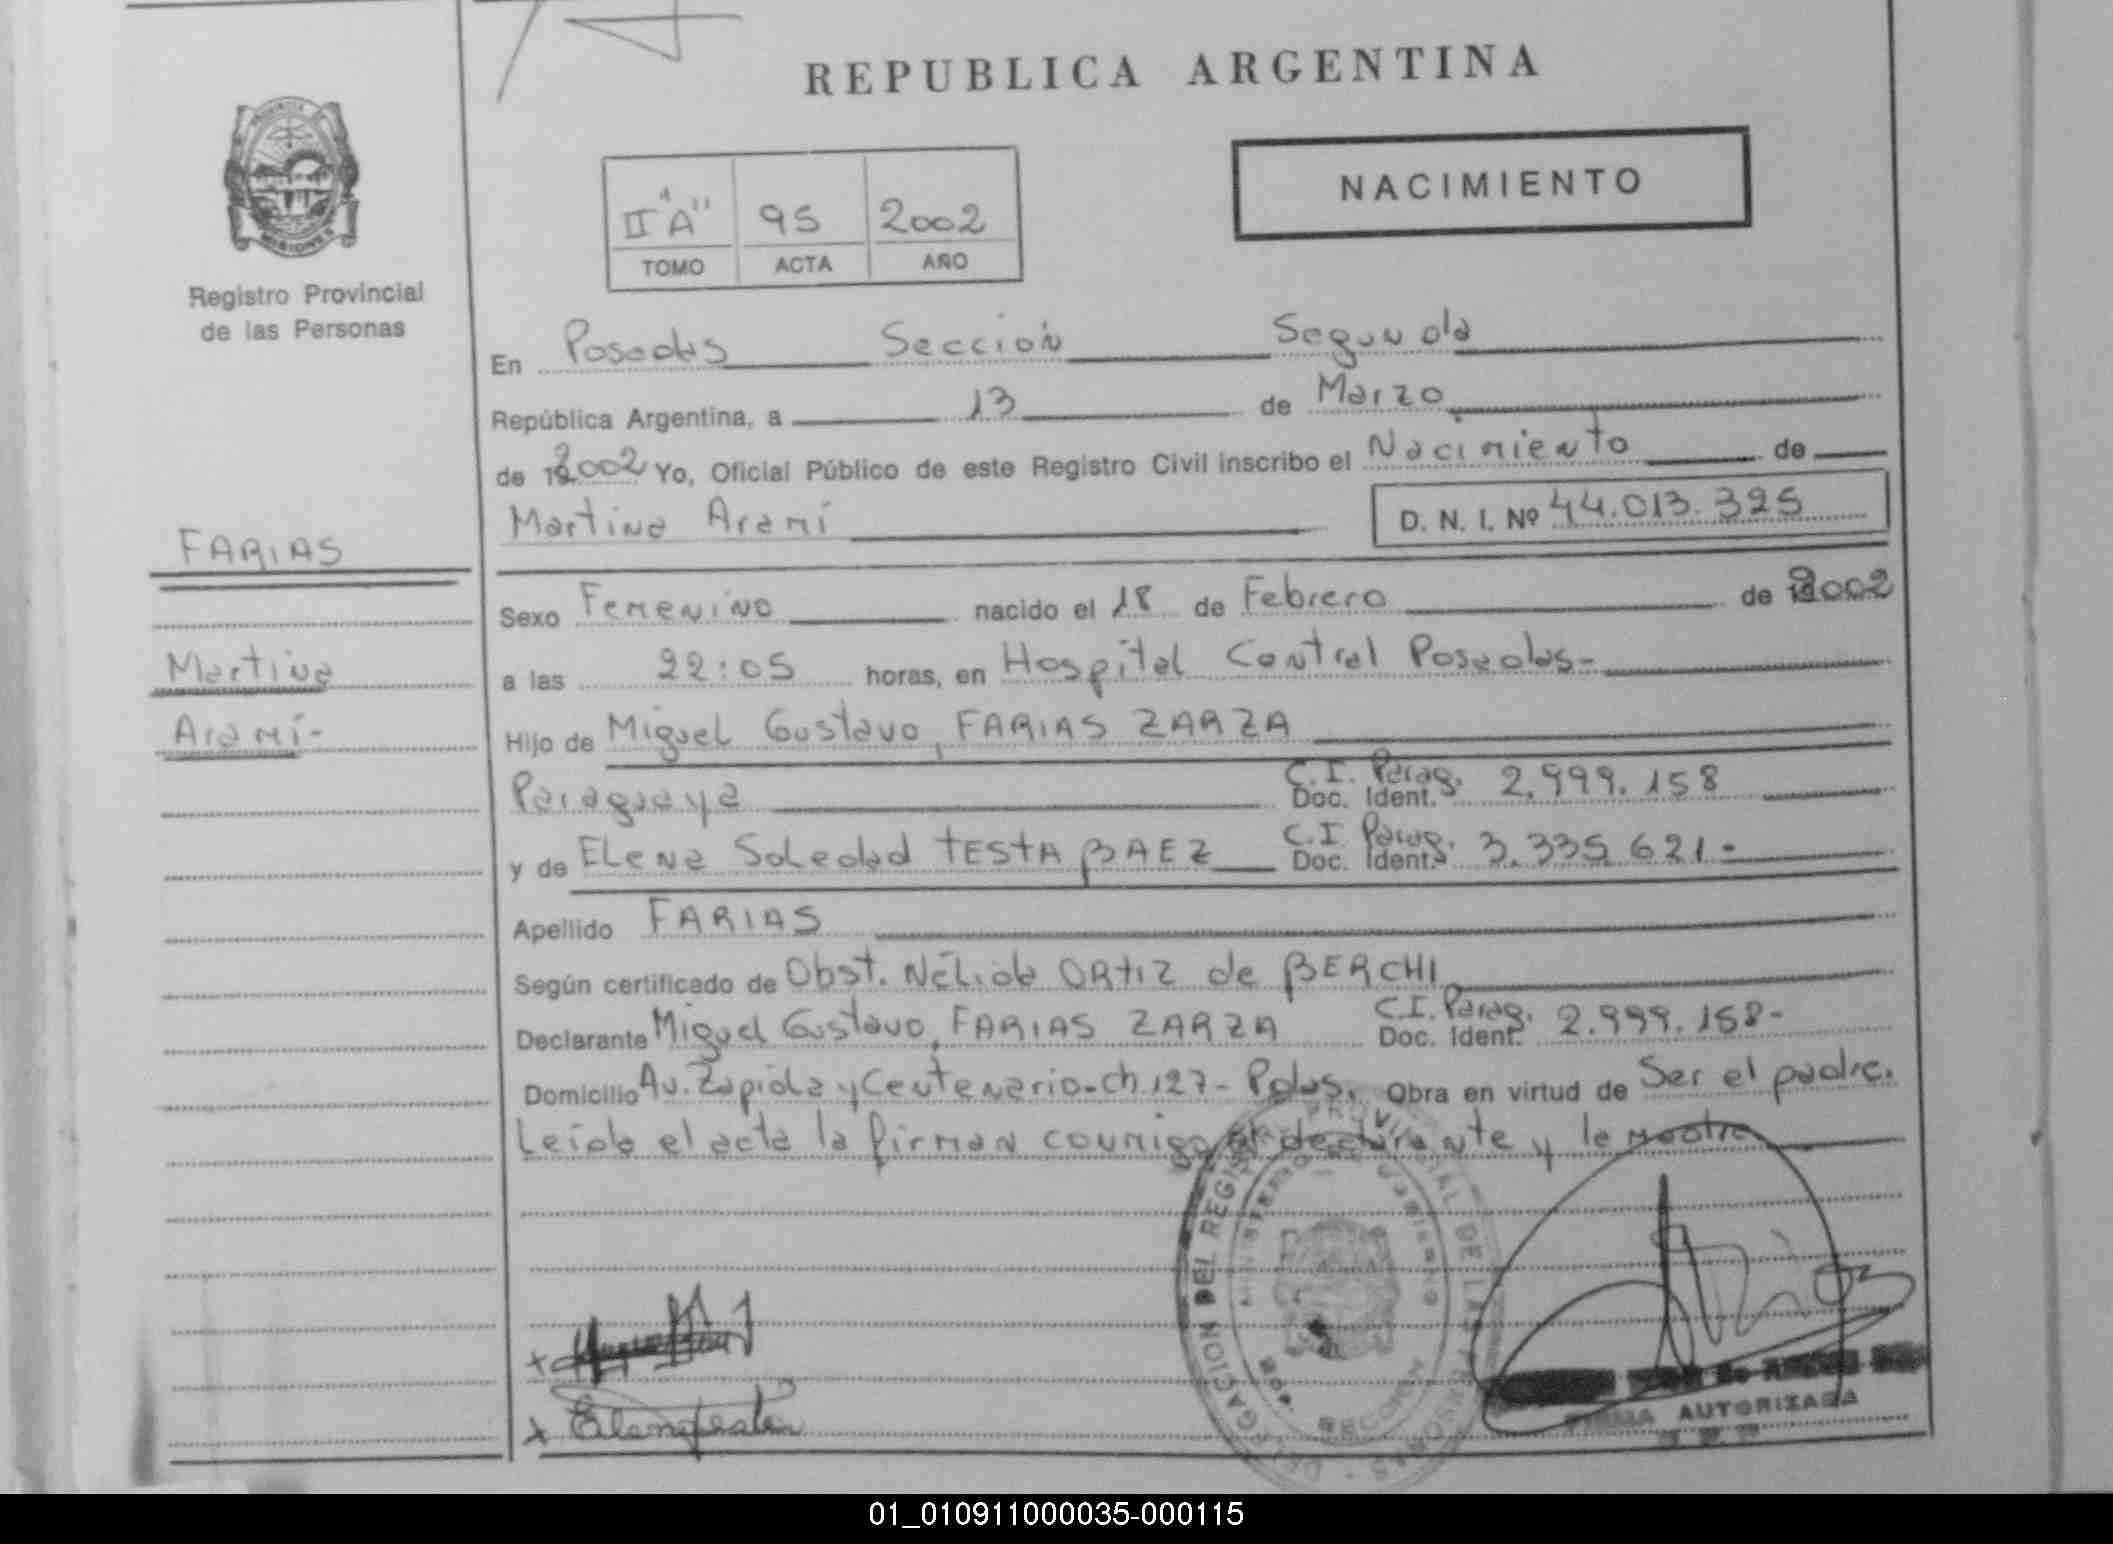 REPUBLICA ARGENTINA
NACIMIENTO
II "A" 95 2002
TOMO ACTA AÑO
PROVINCIA
MISIONES
Registro Provincial
de las Personas
En Posadas Sección Segunda
República Argentina, a 13 de Marzo
de 2002 Yo, Oficial Público de este Registro Civil inscribo el Nacimiento de
Martina Aramí D. N. I. Nº 44.013.325
FARIAS
Sexo Femenino nacido el 18 de Febrero de 2002
Martina
a las 22:05 horas, en Hospital Central Posadas-
Aramí-
Hijo de Miguel Gustavo, FARIAS ZARZA
Paraguaya C.I. Parag. Doc. Ident. 2.999.158
y de Elena Soledad TESTA BAEZ C.I. Parag. Doc. Ident. 3.335.621-
Apellido FARIAS
Según certificado de Obst. Nélida ORTIZ de BERCHI
Declarante Miguel Gustavo, FARIAS ZARZA C.I. Parag. Doc. Ident. 2.999.158-
Domicilio Av. Zapiola y Centenario-ch.127- Pdas. Obra en virtud de Ser el padre.
Leída el acta la firman conmigo el declarante y la madre
DELEGACION DEL REGISTRO PROVINCIAL DE LAS PERSONAS
MINISTERIO DE GOBIERNO
FIRMA AUTORIZADA
01_010911000035-000115